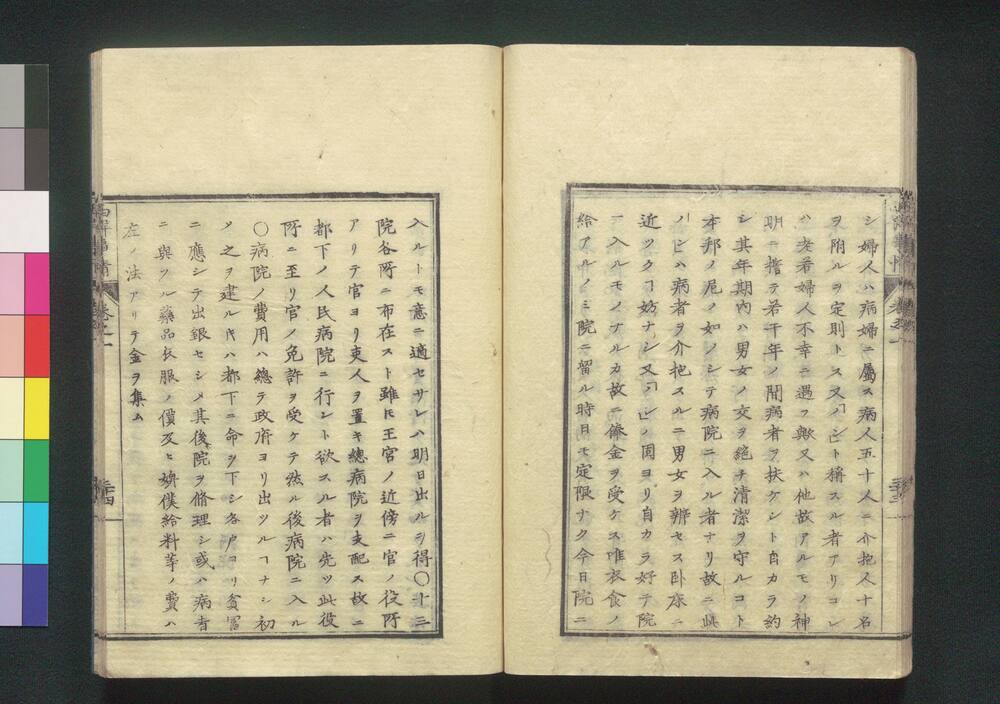 シ婦人ハ病婦ニ屬ス病人五十人ニ介抱人十名
ヲ附ルヲ定則トス又「ノン」ト稱スル者アリコレ
ハ老若婦人不幸ニ遇フ歟又ハ他故アルモノ神
明ニ誓テ若干年ノ間病者ヲ扶ケント自カラ約
シ其年期内ハ男女ノ交ヲ絶チ清潔ヲ守ルコト
本邦ノ尼ノ如ノシテ病院ニ入ル者ナリ故ニ此
「ノン」ハ病者ヲ介抱スルニ男女ヲ辨セス臥床ニ
近ツクヿ妨ナシ又「ノン」ノ固ヨリ自カラ好テ院
ニ入ルモノナルカ故ニ傭金ヲ受ケス唯衣食ノ
給アルノミ院ニ留ル時日モ定限ナク今日院ニ
入ルトモ意ニ適セサレハ明日出ルヲ得〇十二
院各所ニ布在スト雖𪜈王宮ノ近傍ニ官ノ役所
アリテ官ヨリ吏人ヲ置キ總病院ヲ支配ス故ニ
都下ノ人民病院ニ行ント欲スル者ハ先ツ此役
所ニ至リ官ノ免許ヲ受ケテ然ル後病院ニ入ル
〇病院ノ費用ハ總テ政府ヨリ出ツルヿナシ初
メ之ヲ建ルキハ都下ニ命ヲ下シ各戸ヨリ貧富
ニ應シテ出銀セシメ其後院ヲ脩理シ或ハ病者
ニ與ツル藥品衣服ノ價及ヒ婢僕給料等ノ費ハ
左ノ法アリテ金ヲ集ム